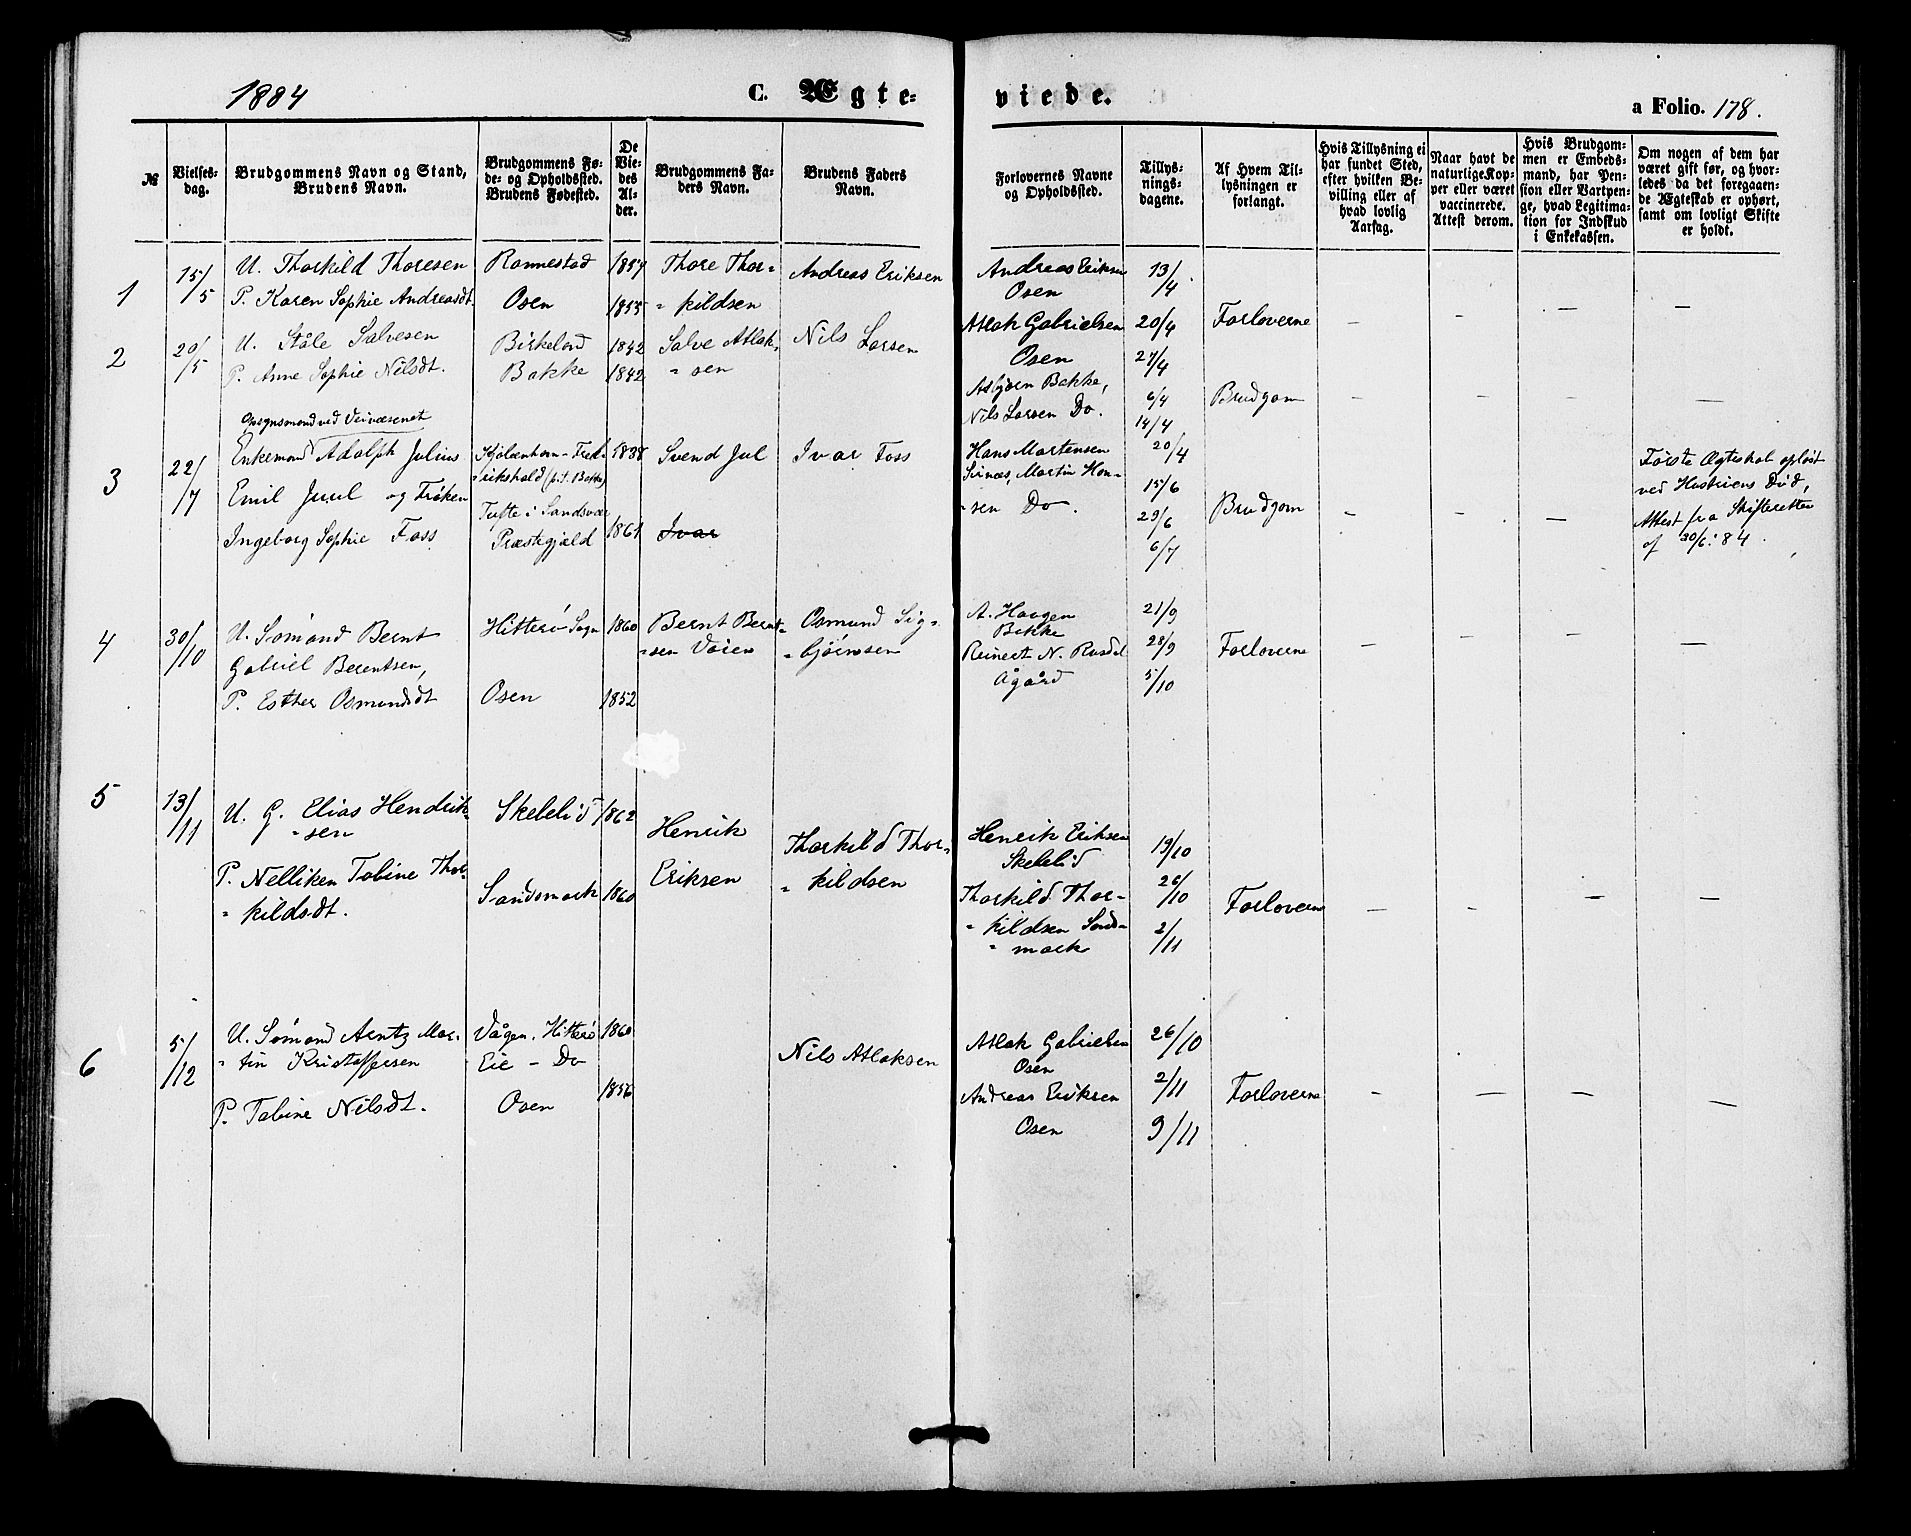 1884
C. Ægte-
viede.
a Folio. 178.
№
Vielses-
dag.
Brudgommens Navn og Stand,
Brudens Navn.
Brudgommens Fø-
de- og Opholdssted.
Brudens Fødested.
De
Vie-
des
Al-
der.
Brudgommens Fa-
ders Navn.
Brudens Faders
Navn.
Forlovernes Navne
og Opholdssted.
Tillys-
nings-
dagene.
Af Hvem Til-
lysningen er
forlangt.
Hvis Tillysning ei
har fundet Sted,
efter hvilken Be-
villing eller af
hvad lovlig
Aarsag.
Naar havt de
naturlige Kop-
per eller været
vaccinerede.
Attest derom.
Hvis Brudgom-
men er Embeds-
mand, har Pen-
sion eller Vartpen-
ge, hvad Legitima-
tion for Indskud
i Enkekassen.
Om nogen af dem har
været gift før, og hvor-
ledes da det foregaaen-
de Ægteskab er ophørt,
samt om lovligt Skifte
er holdt.
1
15/5
U. Thorkild Thoresen
P. Karen Sophie Andreasdt.
Rannestad
Osen
1857
1855
Thore Thor-
" kildsen
Andreas Eriksen
Andreas Eriksen
Osen
Atlak Gabrielsen
Osen
13/4
20/4
27/4
Forloverne
–
–
–
–
2
20/5
U. Ståle Salvesen
P. Anne Sophie Nilsdt.
Birkeland
Bakke
1842
1842
Salve Atlak-
" sen
Nils Larsen
Asbjørn Bakke,
Nils Larsen Do.
6/4
14/4
20/4
Brudgom
–
–
–
–
3
22/7
Opsynsmand ved Veivæsenet
Enkemand Adolph Julius
Emil Juul og Frøken
Ingeborg Sophie Foss
Kjøbenhavn – Fred-
" rikshald (p.t. Bakke)
Tufte i Sandsvær
Præstegjæld
1838
1861
Svend Jul
Ivar
Ivar Foss
Hans Martensen
Sirnæs, Martin Han-
" sen Do.
15/6
29/6
6/7
Brudgom
–
–
–
Første Ægteskab opløst
ved Hustruens Død,
Attest fra Skifteretten
af 30/6. 84.
4
30/10
U. Sømand Bernt
Gabriel Berentsen,
P. Esther Osmundsdt
Hitterø Sogn
Osen
1860
1852
Bernt Bernt-
" sen Våien
Osmund Sig-
" bjørnsen
A. Haagen
Bakke
Reinert N. Rusdal
Ågård
21/9
28/9
5/10
Forloverne
–
–
–
–
5
13/11
U. G. Elias Hendrik-
" sen
P. Nelliken Tobine Thor-
" kildsdt.
Skebelid
Sandsmark
1862
1860
Henrik
Eriksen
Thorkild Thor-
" kildsen
Henrik Eriksen
Skebelid
Thorkild Thor-
" kildsen Sands-
" mark
19/10
26/10
2/11
Forloverne
–
–
–
–
6
5/12
U. Sømand Arntz Mar-
" tin Kristoffersen
P. Tobine Nilsdt.
Vågen, Hitterø
Eie – Do
Osen
1860
1856
Nils Atlaksen
Atlak Gabrielsen
Osen
Andreas Eriksen
Osen
26/10
2/11
9/11
Forloverne
–
–
–
–